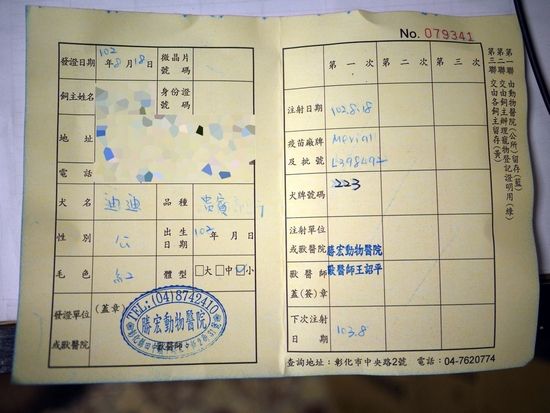 發證日期 102年8月18日 微晶片號碼
飼主姓名 身份證號碼
地址
電話
犬名 迪迪 品種 貴賓
性別 公 出生日期 102年 月 日
毛色 紅 體型 □大□中☑小
發證單位或獸醫院 (蓋章)
TEL:(04)8742410
勝宏動物醫院
獸醫師
No. 079341
第一次 第二次 第三次
注射日期 102.8.18
疫苗廠牌及批號 Merial L398492
犬牌號碼 223
注射單位或獸醫院 勝宏動物醫院
獸醫師蓋(簽)章 獸醫師王詔平
下次注射日期 103.8
查詢地址:彰化市中央路2號 電話:04-7620774
第一聯 由動物醫院(公所)留存(藍)
第二聯 交由飼主辦理寵物登記證明用(綠)
第三聯 交由各飼主留存(黃)